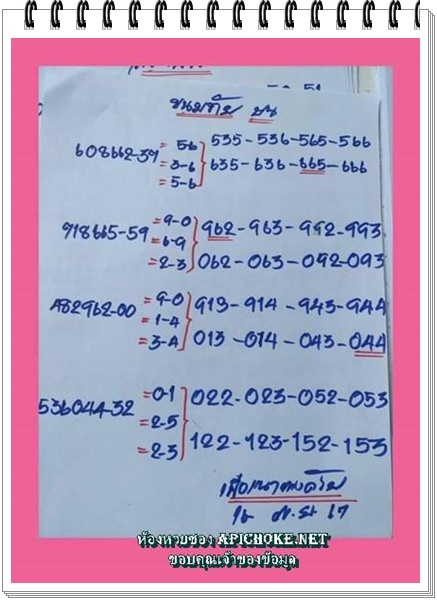 ชนมท้าย บน
608662-39 = 56 535-536-565-566
= 3-6 635-636-665-666
= 5-6
918665-59 = 9-0 962-963-992-993
= 6-9 062-063-092-093
= 2-3
482962-00 = 9-0 913-914-943-944
= 1-4 013-014-043-044
= 3-4
536044-32 = 0-1 022-023-052-053
= 2-5 122-123-152-153
= 2-3
16 17
ห้องหวยซอง APICHOKE.NET
ขอบคุณเจ้าของข้อมูล